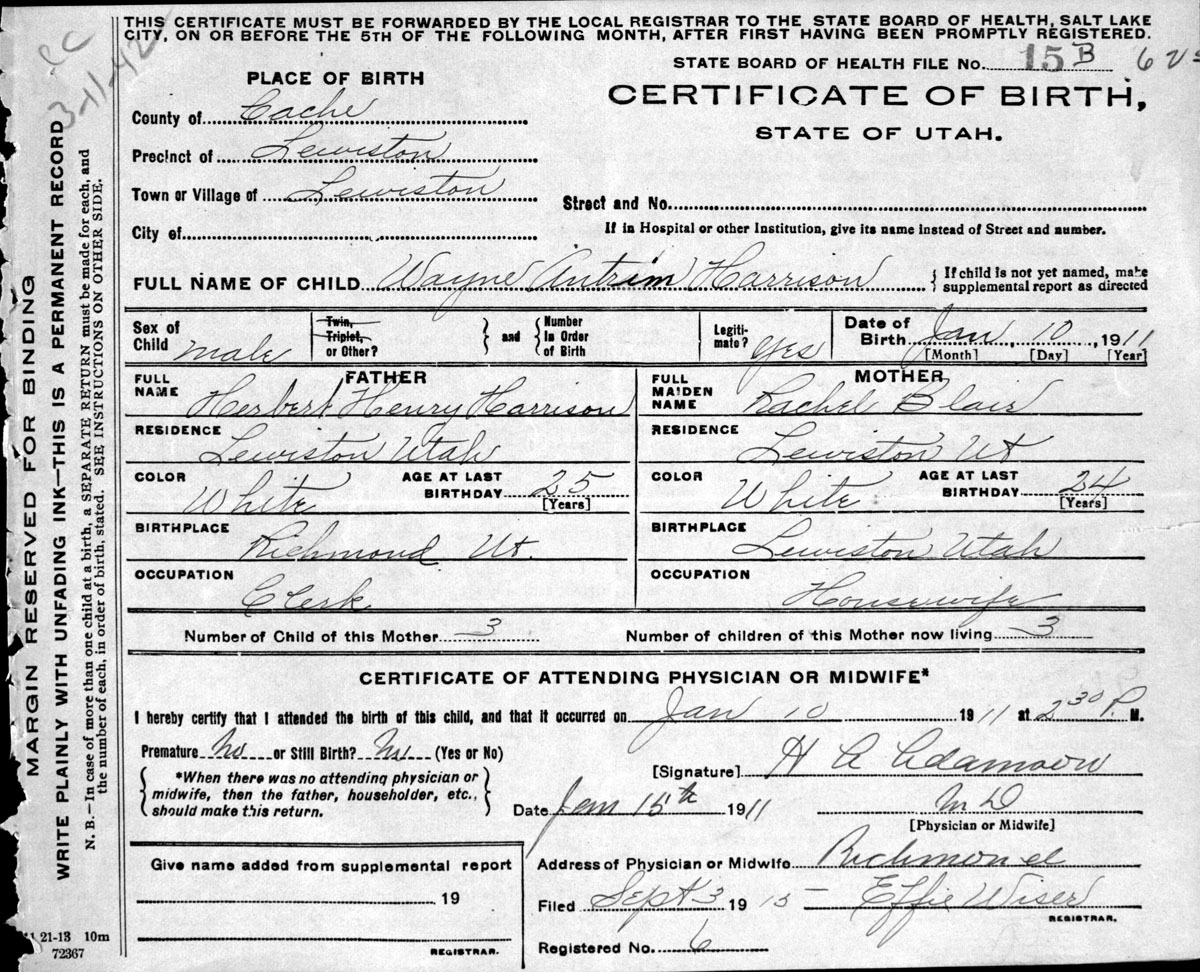 THIS CERTIFICATE MUST BE FORWARDED BY THE LOCAL REGISTRAR TO THE STATE BOARD OF HEALTH, SALT LAKE
CITY, ON OR BEFORE THE 5TH OF THE FOLLOWING MONTH, AFTER FIRST HAVING BEEN PROMPTLY REGISTERED.
3-11-42
STATE BOARD OF HEALTH FILE No. 15B
PLACE OF BIRTH
CERTIFICATE OF BIRTH,
STATE OF UTAH.
County of Cache
Precinct of Lewiston
Town or Village of Lewiston
Street and No.
City of
If in Hospital or other Institution, give its name instead of Street and number.
FULL NAME OF CHILD Wayne Antrim Harrison { If child is not yet named, make
supplemental report as directed
Sex of Child male
Twin, Triplet, or Other? } and { Number in Order of Birth
Legitimate? Yes
Date of Birth Jan, 10, 1911
[Month] [Day] [Year]
FATHER
FULL NAME Herbert Henry Harrison
RESIDENCE Lewiston Utah
COLOR White AGE AT LAST BIRTHDAY 25 [Years]
BIRTHPLACE Richmond Ut.
OCCUPATION Clerk
MOTHER
FULL MAIDEN NAME Rachel Blair
RESIDENCE Lewiston Ut
COLOR White AGE AT LAST BIRTHDAY 24 [Years]
BIRTHPLACE Lewiston Utah
OCCUPATION Housewife
Number of Child of this Mother 3 Number of children of this Mother now living 3
CERTIFICATE OF ATTENDING PHYSICIAN OR MIDWIFE*
I hereby certify that I attended the birth of this child, and that it occurred on Jan 10 1911 at 2 30 P. M.
Premature No or Still Birth? No (Yes or No)
{ *When there was no attending physician or
midwife, then the father, householder, etc.,
should make this return. }
[Signature] H A Adamson
Date Jan 15th 1911 M D
[Physician or Midwife]
Give name added from supplemental report
19
REGISTRAR.
Address of Physician or Midwife Richmond
Filed Sept 3 1915 - Effie Wiser
REGISTRAR.
Registered No. 6
21-13 10m
72367
MARGIN RESERVED FOR BINDING
WRITE PLAINLY WITH UNFADING INK—THIS IS A PERMANENT RECORD
N. B.—In case of more than one child at a birth, a SEPARATE RETURN must be made for each, and
the number of each, in order of birth, stated. SEE INSTRUCTIONS ON OTHER SIDE.